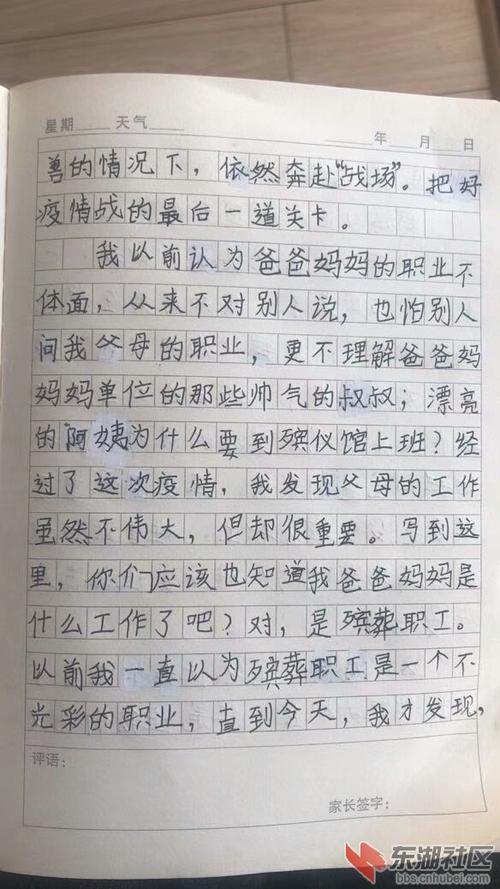 星期 天气 年 月 日
兽的情况下，依然奔赴“战场”。把好
疫情战的最后一道关卡。
我以前认为爸爸妈妈的职业不
体面，从来不对别人说，也怕别人
问我父母的职业，更不理解爸爸妈
妈妈单位的那些帅气的叔叔；漂亮
的阿姨为什么要到殡仪馆上班？经
过了这次疫情，我发现父母的工作
虽然不伟大，但却很重要。写到这
里，你们应该也知道我爸爸妈妈是
什么工作了吧？对，是殡葬职工。
以前我一直以为殡葬职工是一个不
光彩的职业，直到今天，我才发现，
评语：
家长签字：
东湖社区
bbs.cnhubei.com